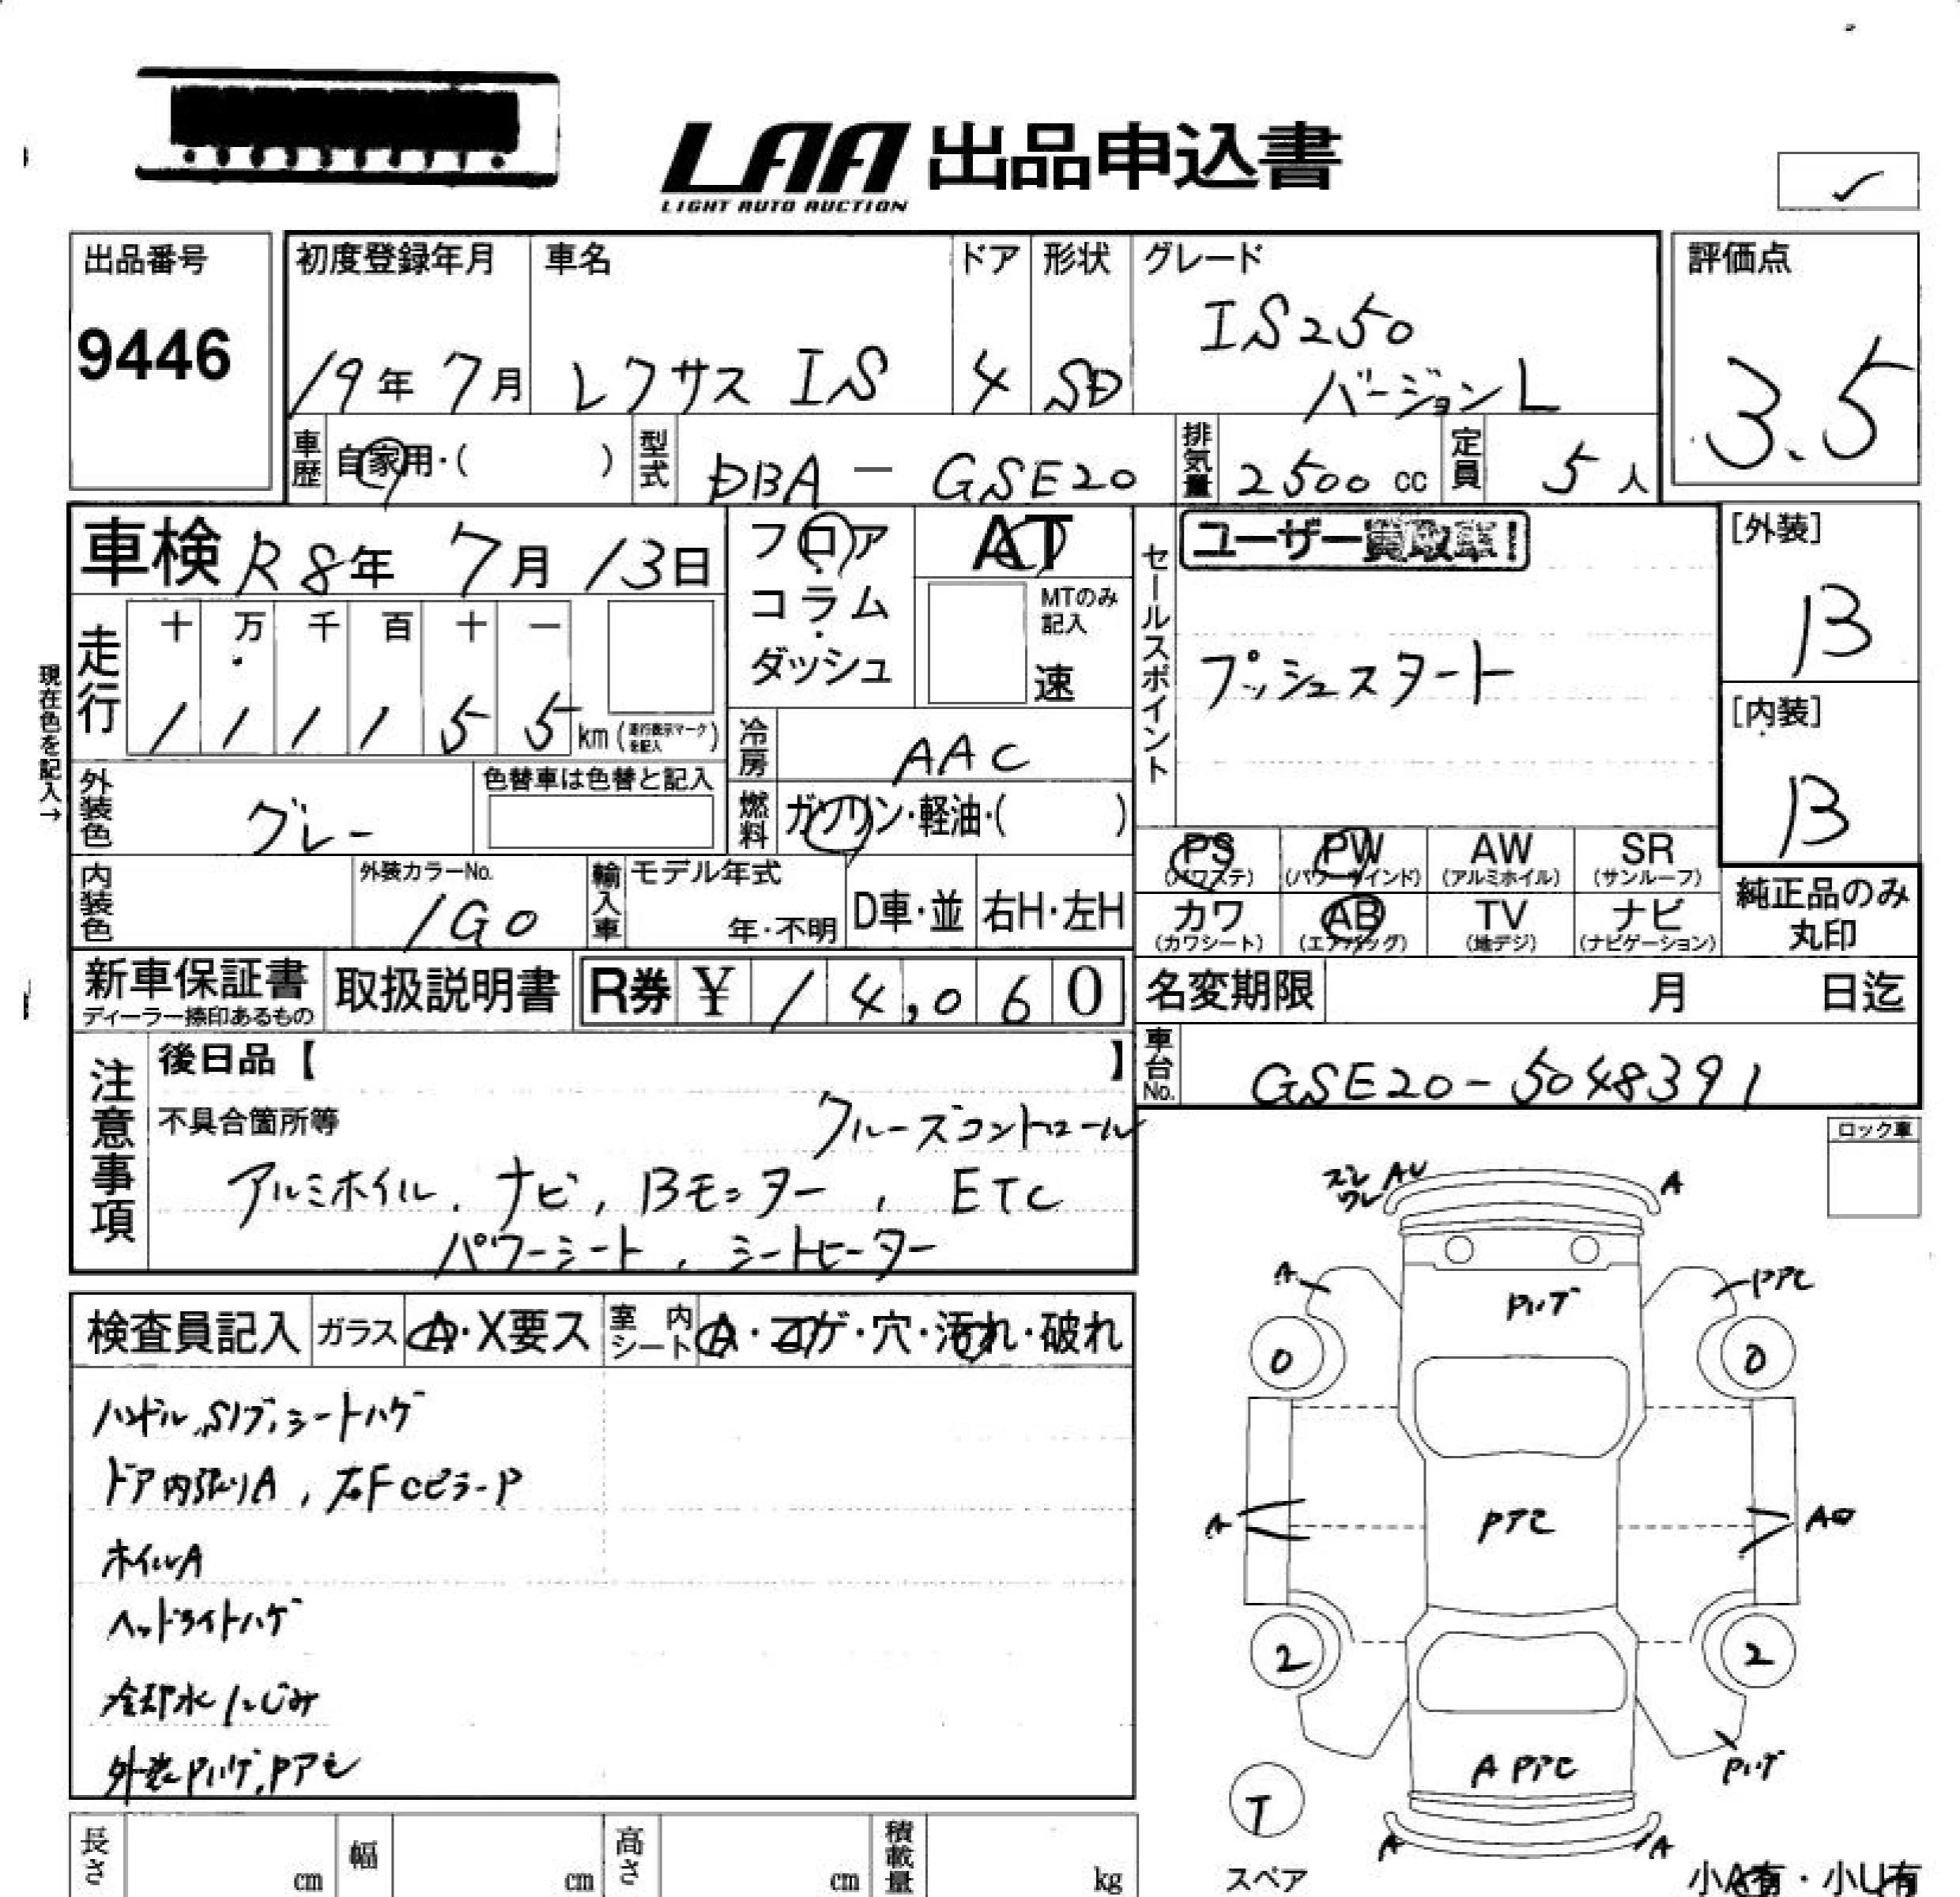 LAA 出品申込書
LIGHT AUTO AUCTION
出品番号
9446
初度登録年月
19年 7月
車名
レクサス IS
ドア
4
形状
SD
グレード
IS250
バージョンL
評価点
3.5
車歴
自家用・( )
型式
DBA - GSE20
排気量
2500 cc
定員
5人
車検 R8年 7月 13日
フロア
・
コラム
・
ダッシュ
AT
MTのみ
記入
速
セールスポイント
プッシュスタート
[外装]
B
[内装]
B
現在色を記入→
走行
十 万 千 百 十 一
1 1 1 1 5 5 km
冷房
AAC
外装色
グレー
色替車は色替と記入
燃料
ガソリン・軽油・( )
PS
(パワステ)
PW
(パワーウインド)
AW
(アルミホイル)
SR
(サンルーフ)
カワ
(カワシート)
AB
(エアバッグ)
TV
(地デジ)
ナビ
(ナビゲーション)
純正品のみ
丸印
内装色
外装カラーNo.
1G0
輸入車
モデル年式
年・不明
D車・並
右H・左H
新車保証書
ディーラー捺印あるもの
取扱説明書
R券 ¥ 14,060
名変期限
月 日迄
車台No.
GSE20-5048391
注意事項
後日品【 】
不具合箇所等
クルーズコントロール
アルミホイル, ナビ, Bモニター, ETC
パワーシート, シートヒーター
ロック車
検査員記入
ガラス
A・X要ス
室内
シート
A・コゲ・穴・汚れ・破れ
ハンドル,SIブ,シートハゲ
ドア内張りA, 右FCピラーP
ホイルA
ヘッドライトハゲ
冷却水にじみ
外装Pハゲ,Pアセ
ズレ
ワレ
AU
A
A
Pアセ
Pハゲ
0
0
A
Pアセ
2
2
A Pアセ
Pハゲ
T
スペア
A
A
小A有・小U有
長さ
cm
幅
cm
高さ
cm
積載量
kg